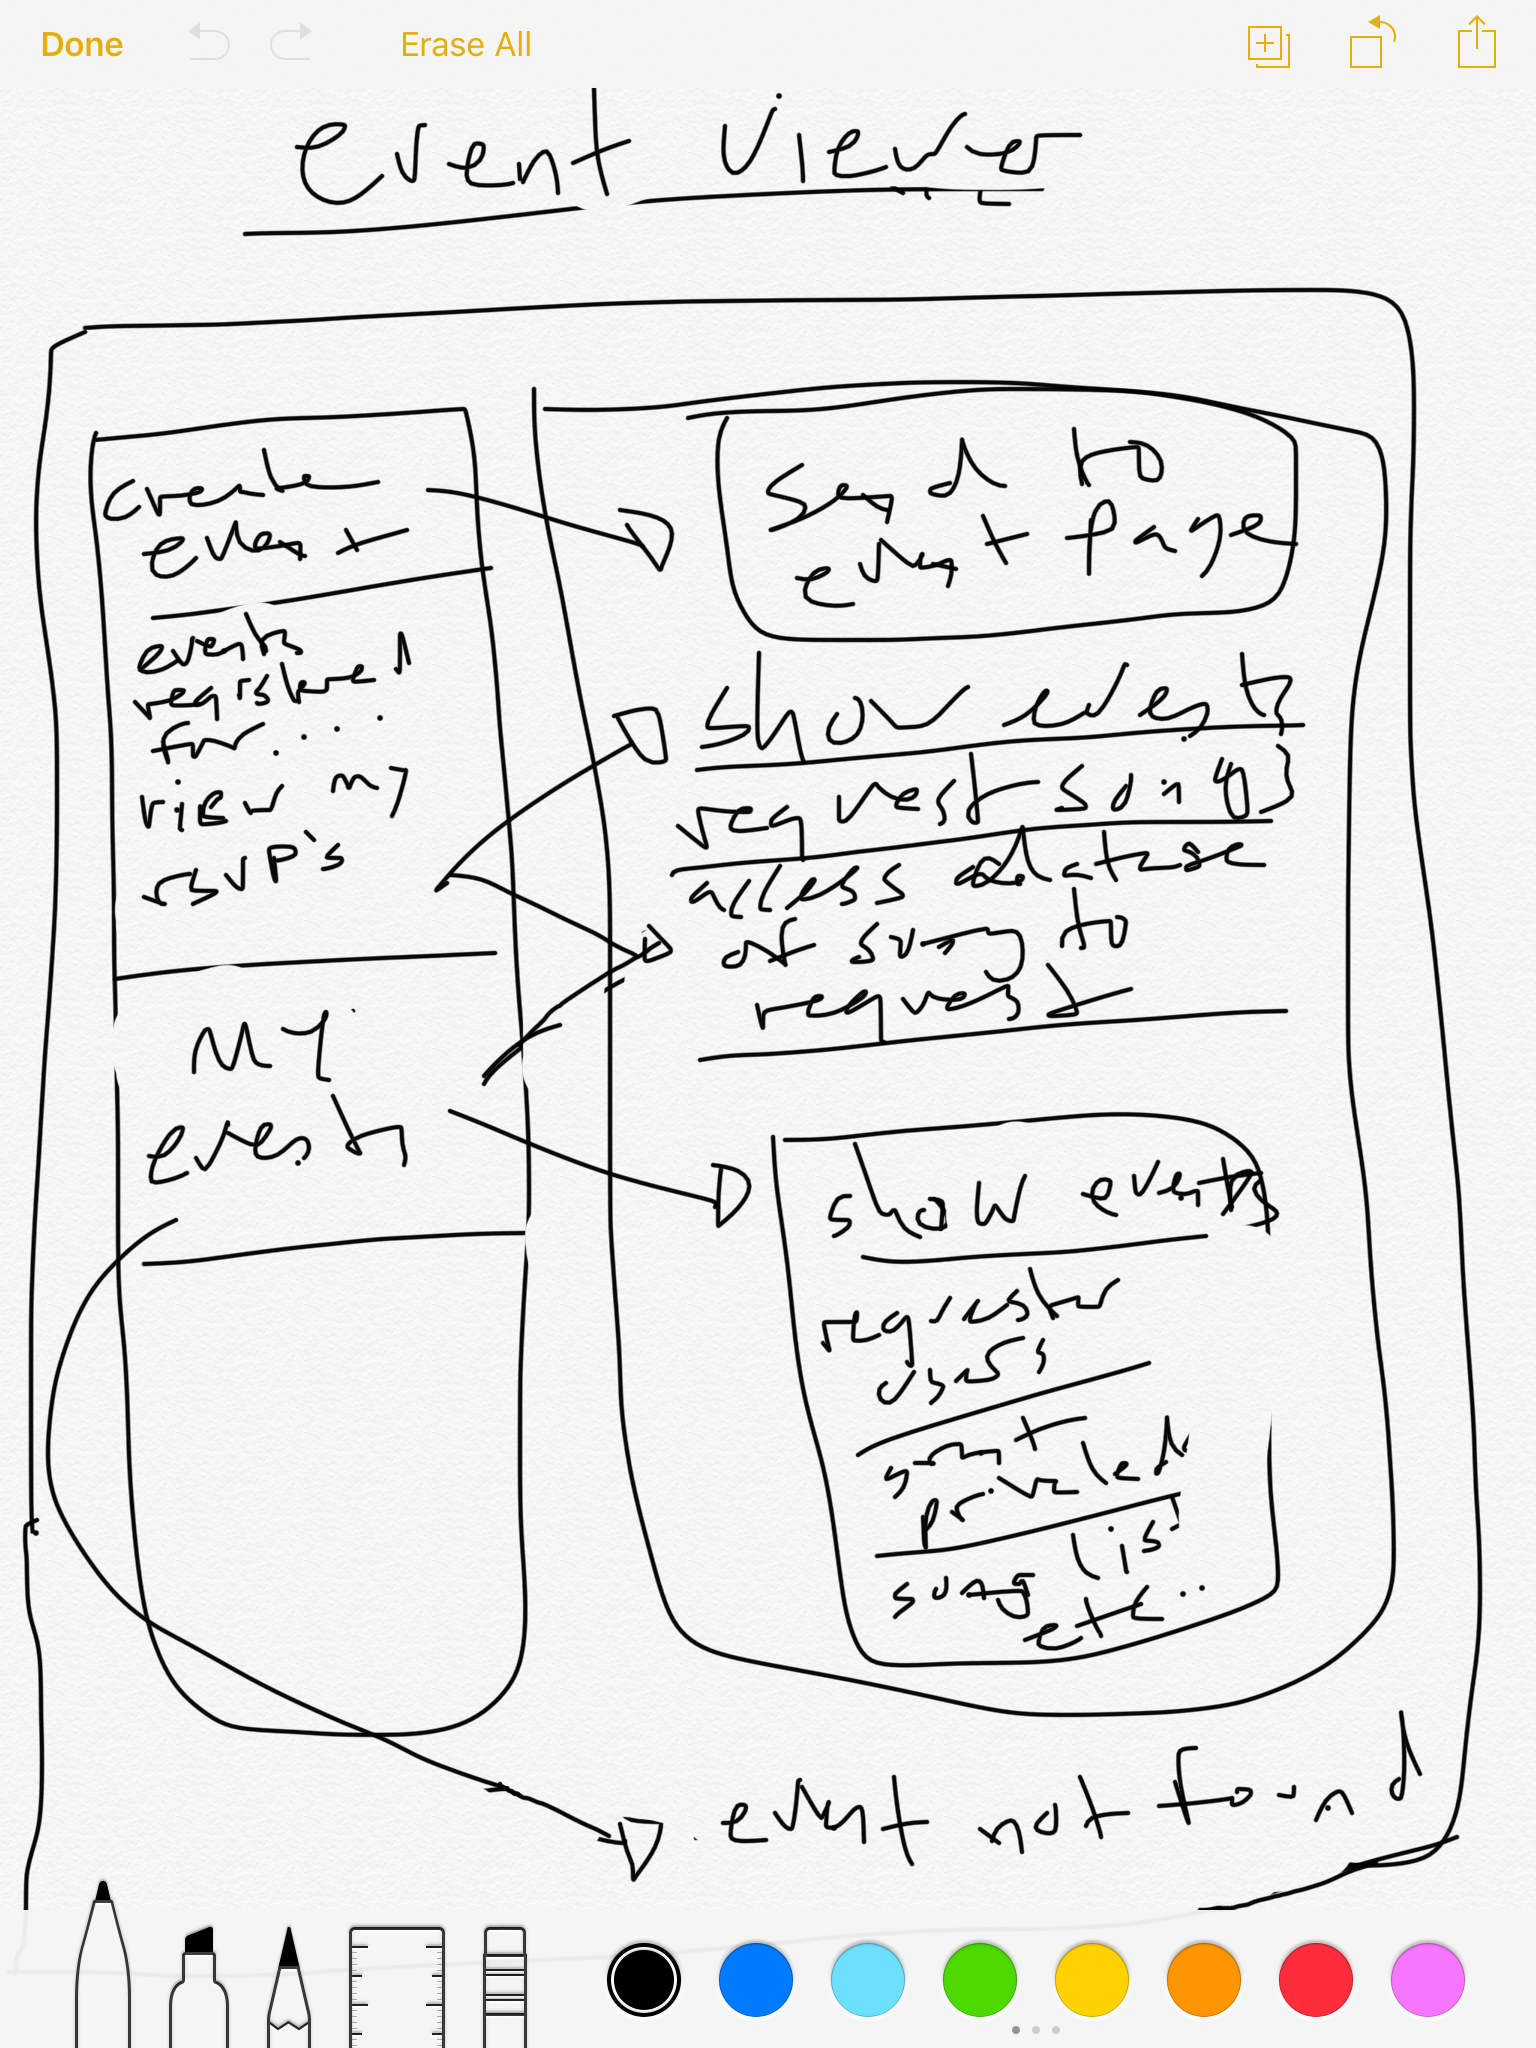 Done
Erase All
event viewer
create
event
events
registered
for....
view my
rsvp's
My
events
send to
event page
show events
request songs
access database
of song to
request
show events
register
users
song list
etc...
event not found